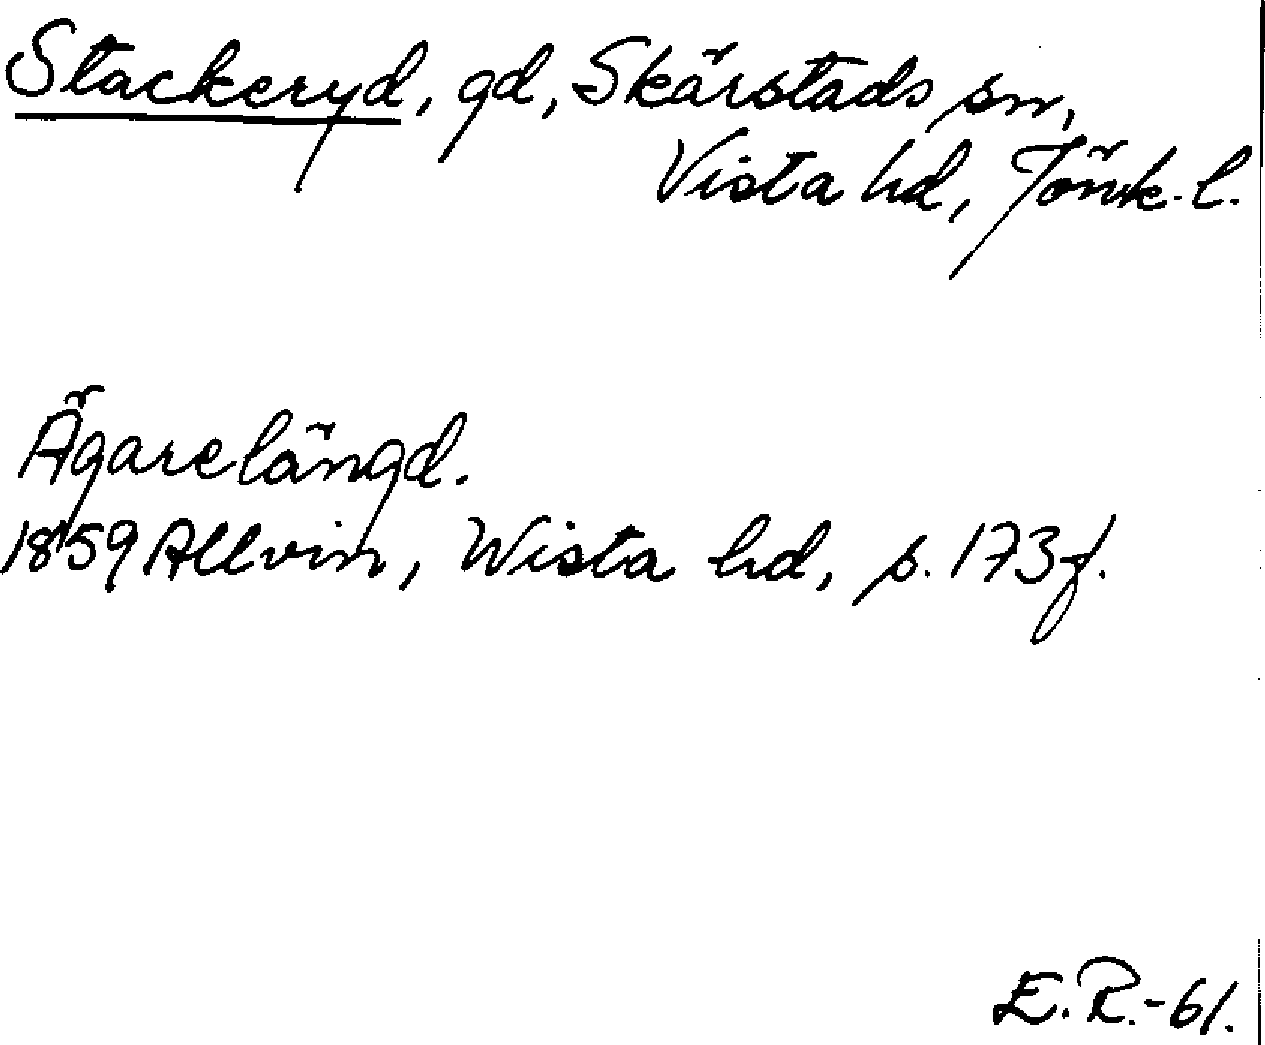 Stackeryd, gd, Skärstads sn,
Vista hd, Jönk. l.
Ägarelängd.
1859 Allvin, Wista hd, s. 173 f.
E. R. -61.